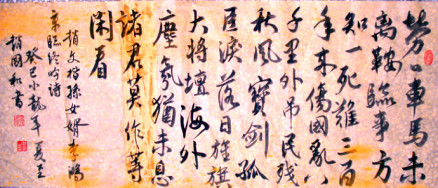 勞〻車馬未
离鞍臨事方
知一死難三百
年来傷國亂八
千里外吊民残
秋風寶劍孤
臣淚落日旌旗
大将壇海外
塵氛猶未息
諸君莫作等
闲看
趙文楷孫女婿李鴻
章臨終吟詩
癸巳小龍年夏至
趙國和書